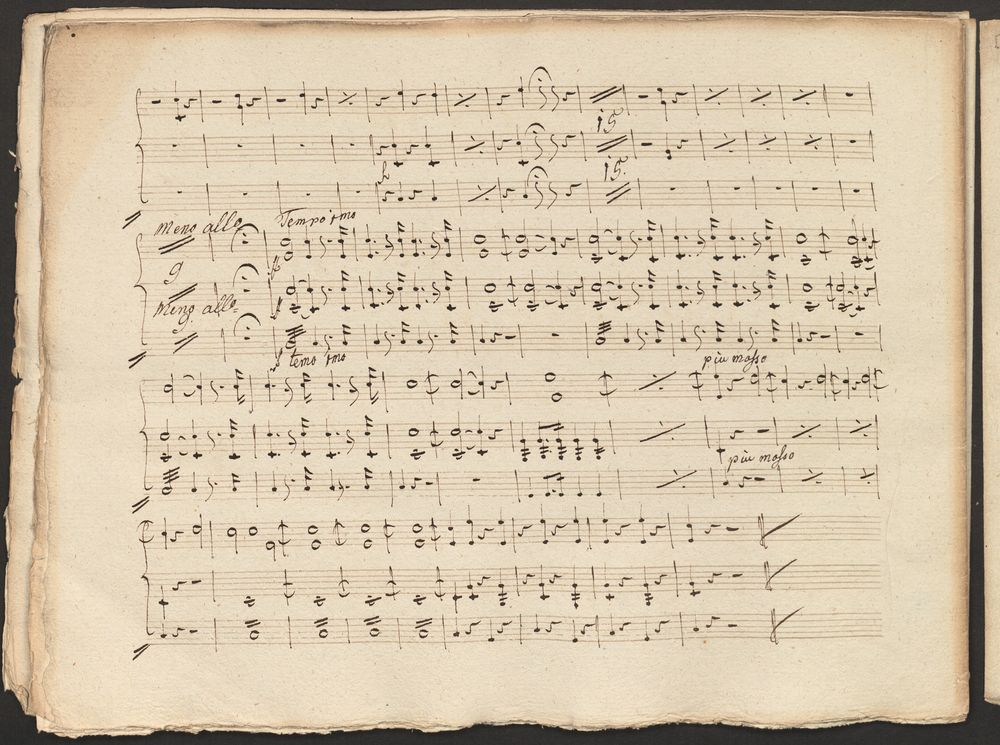 15
15.
Meno allo
Tempo 1mo
9
Meno. allo.
9.
temo 1mo
più mosso
più mosso